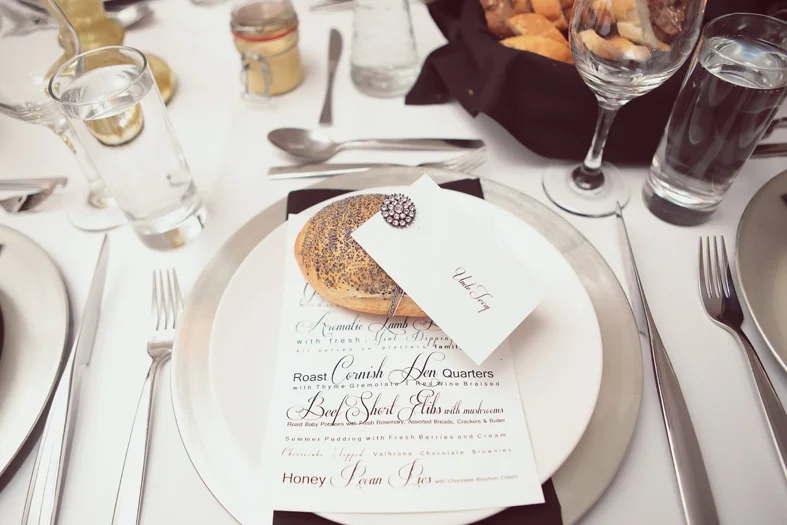 Uncle Terry
Aromatic Lamb
with fresh Mint Dipping
All served on platters family
Roast Cornish Hen Quarters
with Thyme Gremolata Red Wine Braised
Beef Short Ribs with mushrooms
Roast Baby Potatoes with Fresh Rosemary, Assorted Breads, Crackers & Butter
Summer Pudding with Fresh Berries and Cream
Cheesecake Topped Valhrona Chocolate Brownies
Honey Pecan Pies with Chocolate Bourbon Cream